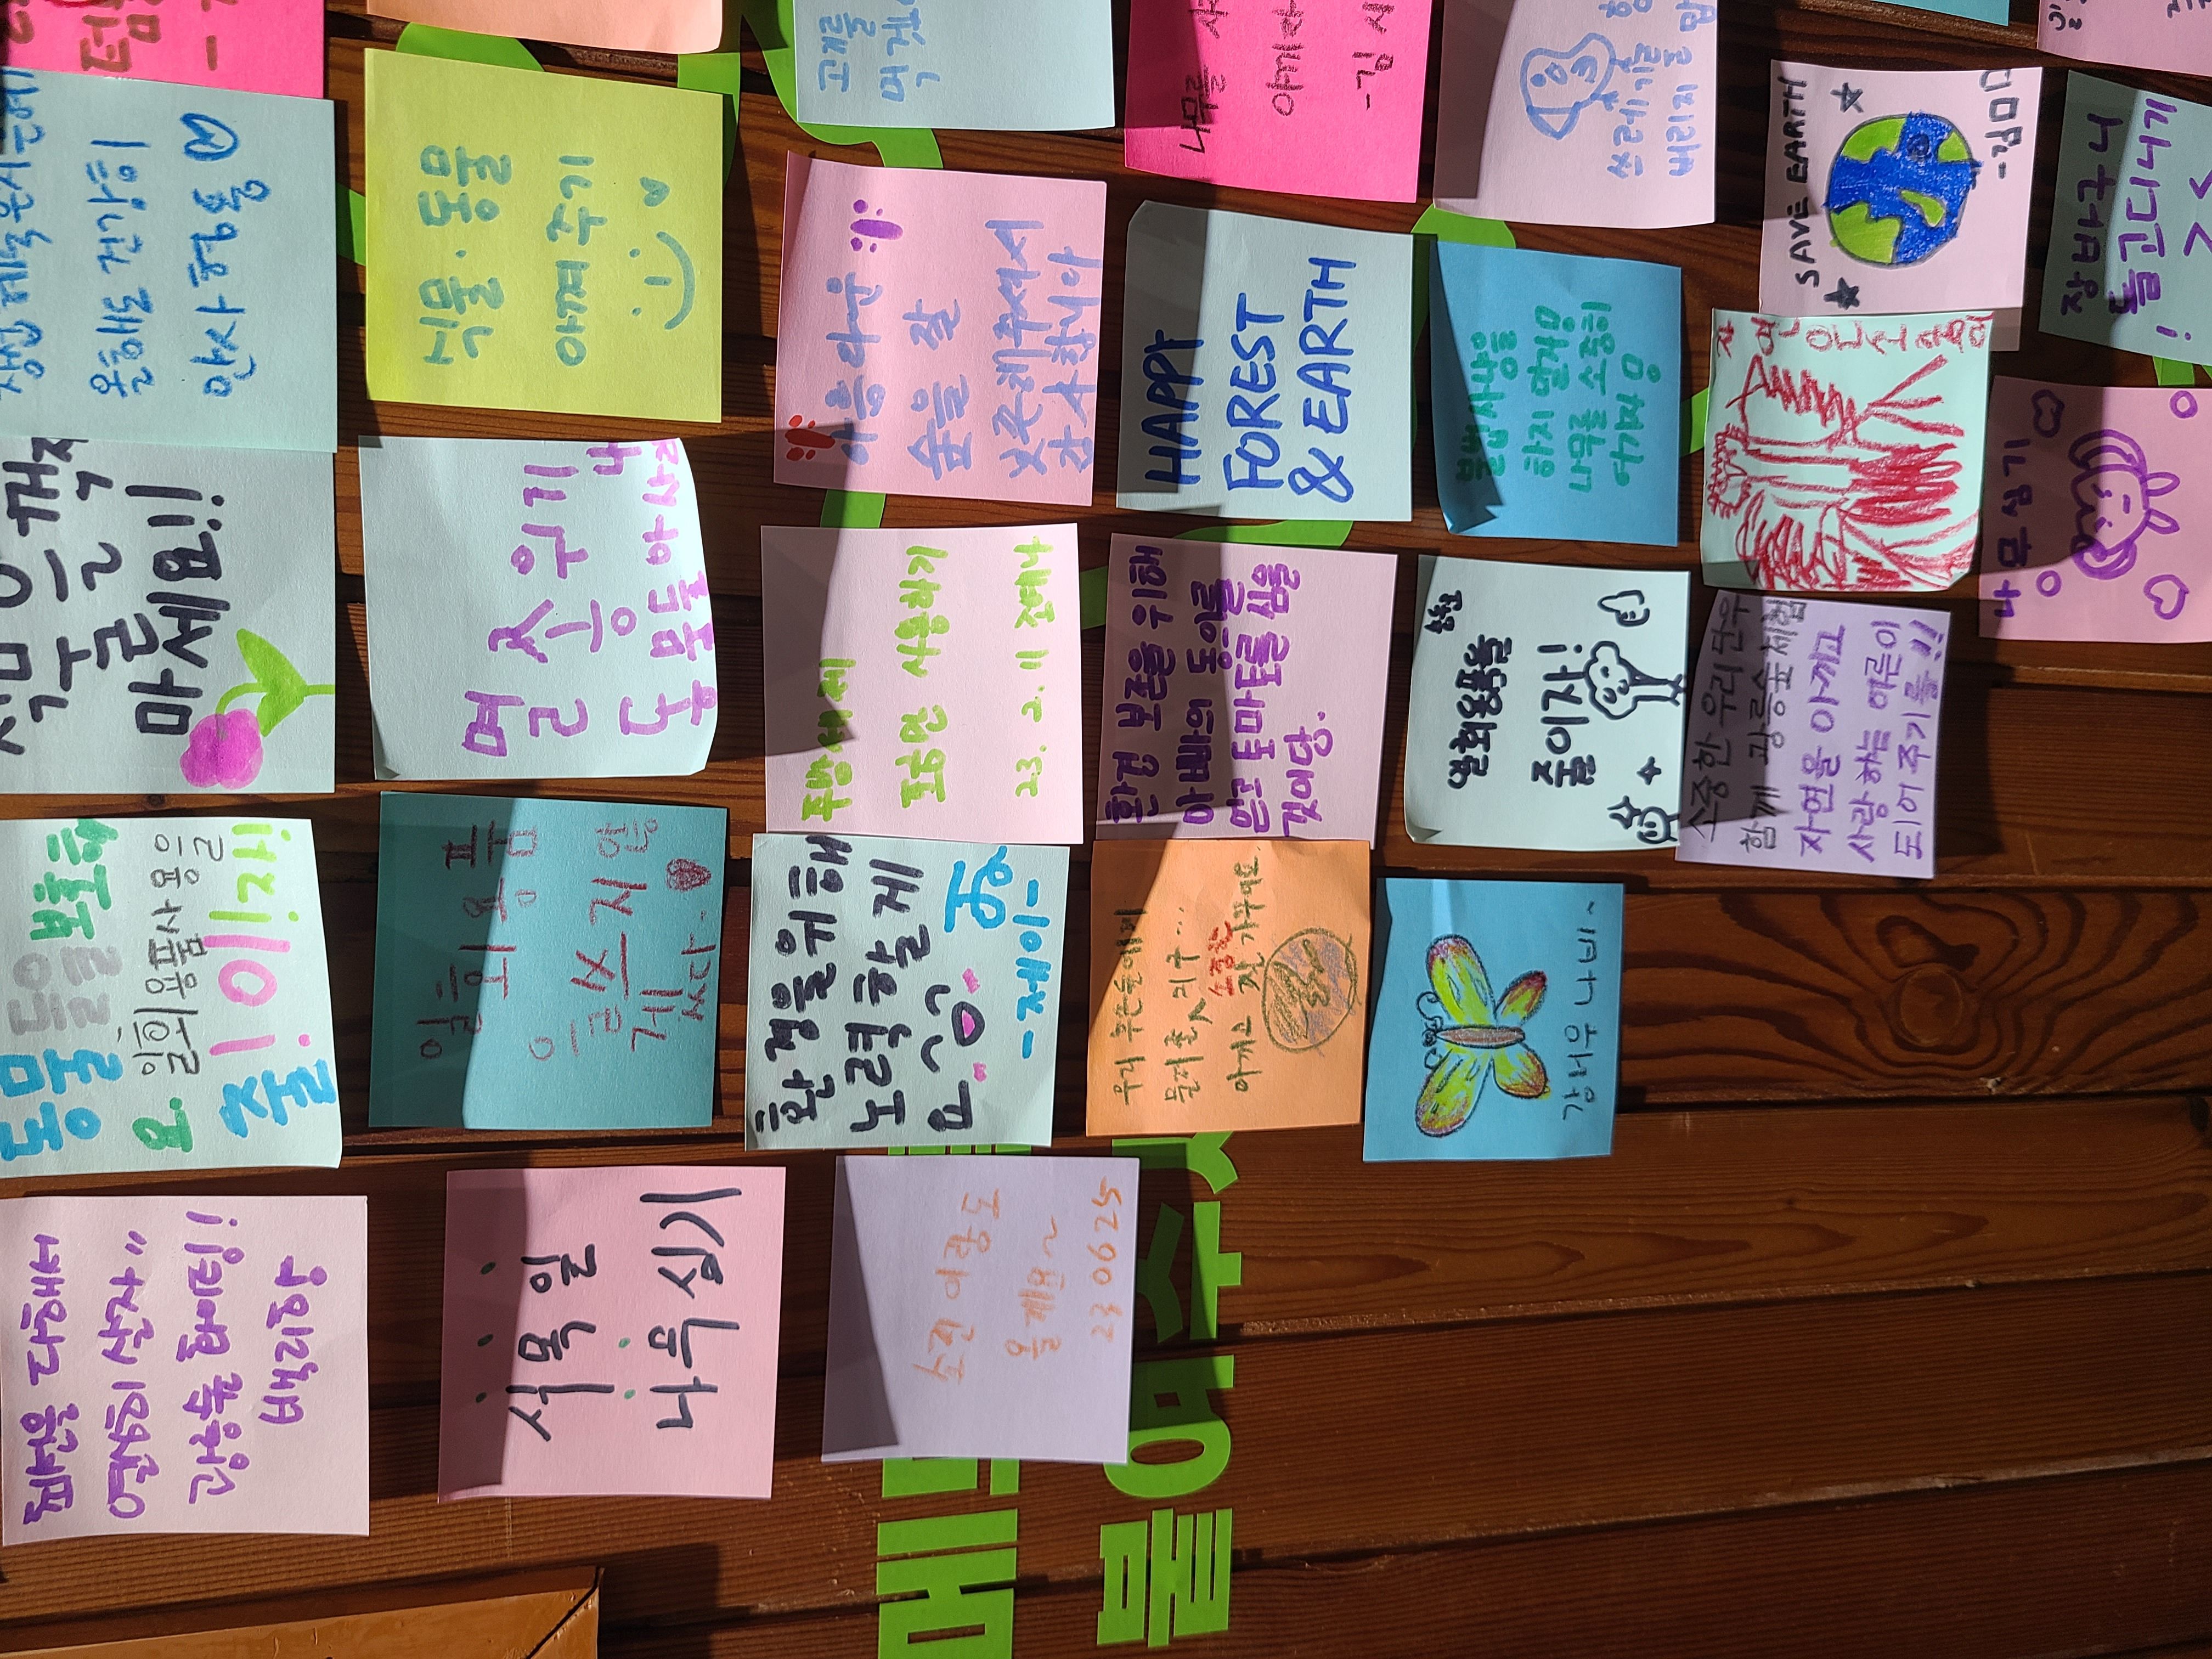 최선을 다해서
열심히 살자"
광릉숲 화이팅!
백리향
동물들을 보호해
요. 일회용품사용을
줄!이!자!
식물을 꺾지
마세요!!
올해도 건강히
만사형통
식목일
나무심기
일회용품
을 쓰지 않
겠
습다
멸종위기
동물들아 사
식물·동물
아껴주기
소린이랑도
올게요~
230625
환경을위해
노력할게
요
-제이-
주방세제
조금만 사용하기
23. 2. 11 조예나
아름다운
숲을 잘
보존해주셔서
감사합니다
고기를
먹겠
메
붙여주
우리 후손들에게
물려줄 지구...
소중한
아끼고 잘 가꾸어요
환경 보존을 위해
아빠의 동의를
얻고 토마토를 심을
것이당.
HAPPY
FOREST
& EARTH
나무를
아끼자
-김
나비~
일회용품을
줄이자!
불법사냥을
하지 말자!
나무를 소중히
여기자!
쓰레기를
버리지
소중한 우리단우
함께 광릉숲체험
자연을 아끼고
사랑하는 어른이
되어주기를!!
자연은소중해
SAVE EARTH
나무심기
장바구니
들고다니기
!
><